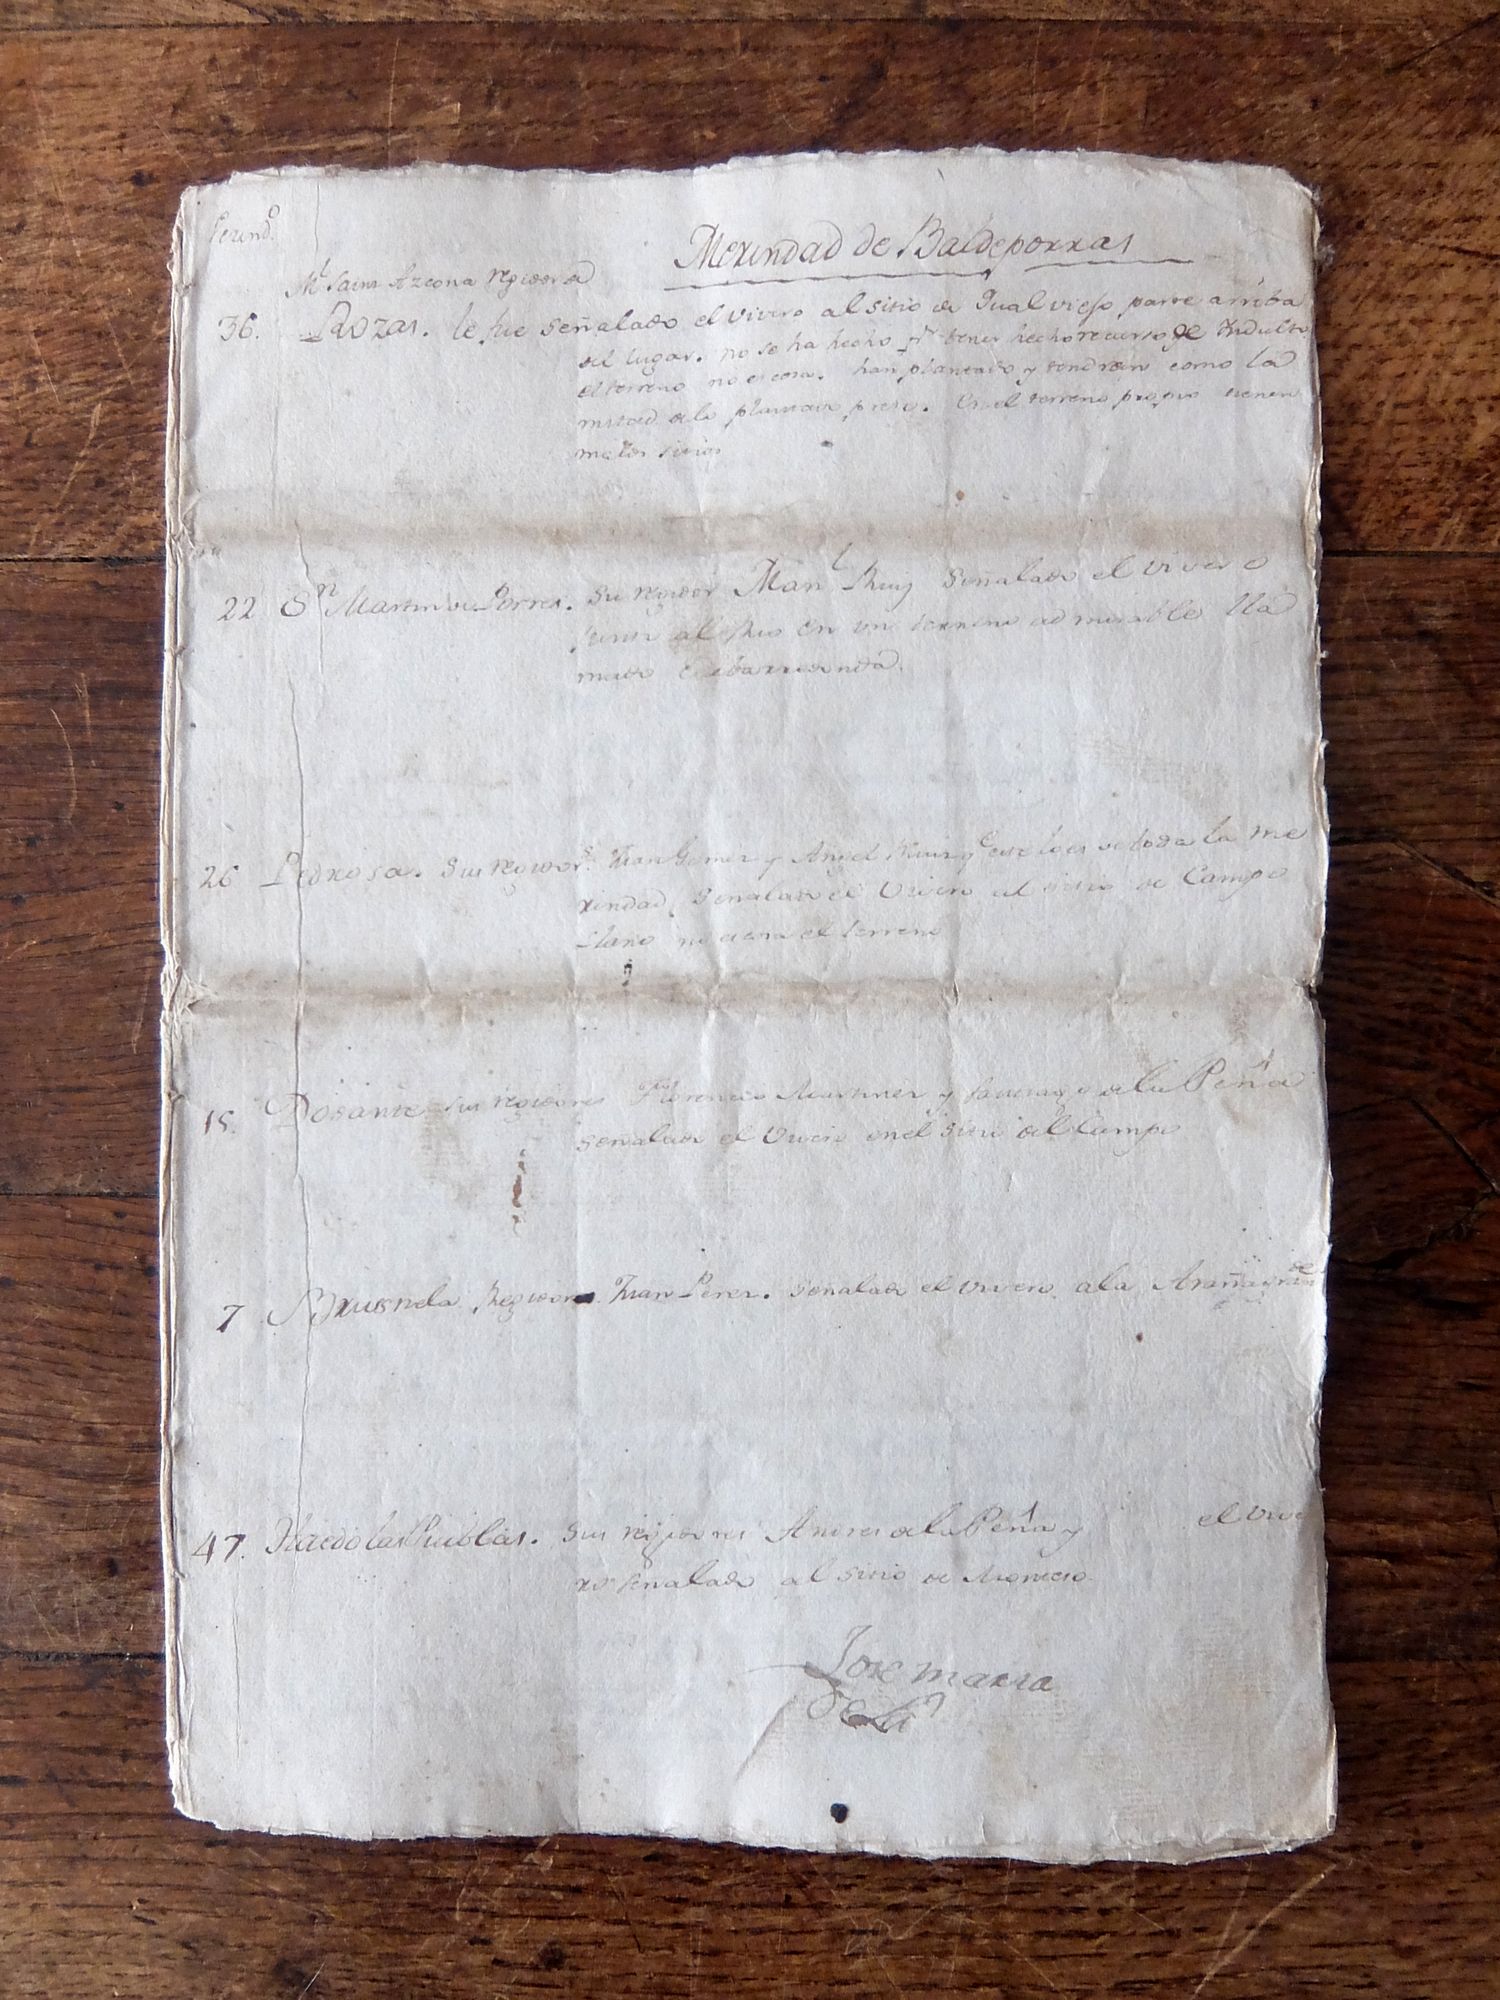 Merindad de Baldeporras
Azcona regidor
36. Rozas. le fue señalado el vivero al sitio de viejo parte arriba
del lugar. no se ha hecho pr tener hecho recurso de Indulto
el terreno no es cosa. han plantado y tendran como la
mitad de lo En el terreno propio tienen
sitios
22 Sn Martin de Porres. su regidor Manl Ruiz señalado el vivero
junto al Rio en un terreno admirable lla
mado
26 Pedrosa. sus regidors Juan Gomez y Angel Ruiz y este lo es de toda la me
rindad señalado el vivero al sitio de Campo
llano no es cosa el terreno
15. Dosante sus regidores Florencio Martinez y de la Peña
señalado el vivero en el sitio del Campo
7 Brusnela Regidor Juan Perez. señalado el vivero a la
47. Haedo las Pueblas. sus regidores Andres de la Peña y el vive
ro señalado al sitio de
Jose maria